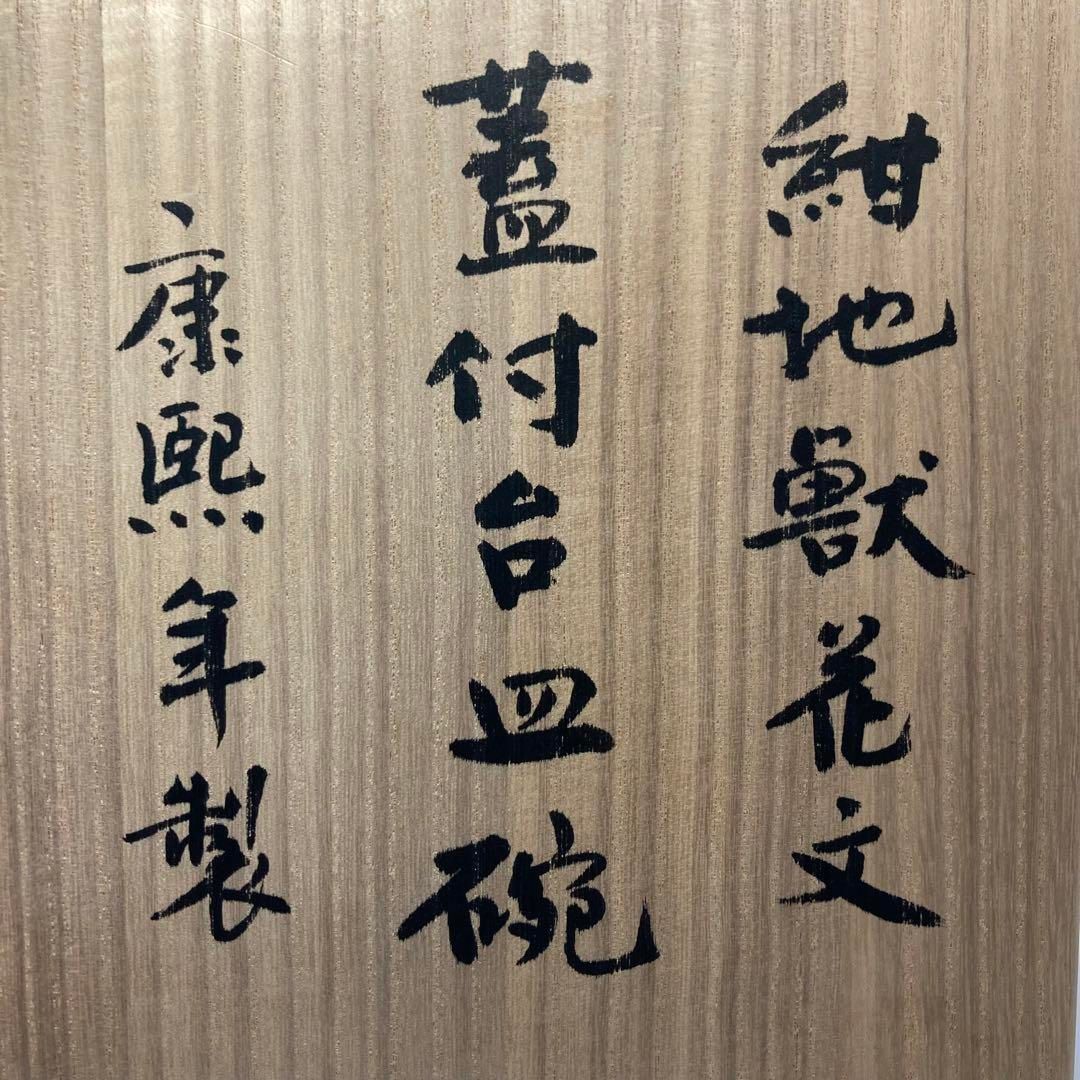 紺地獸花文
蓋付台皿碗
康熙年製